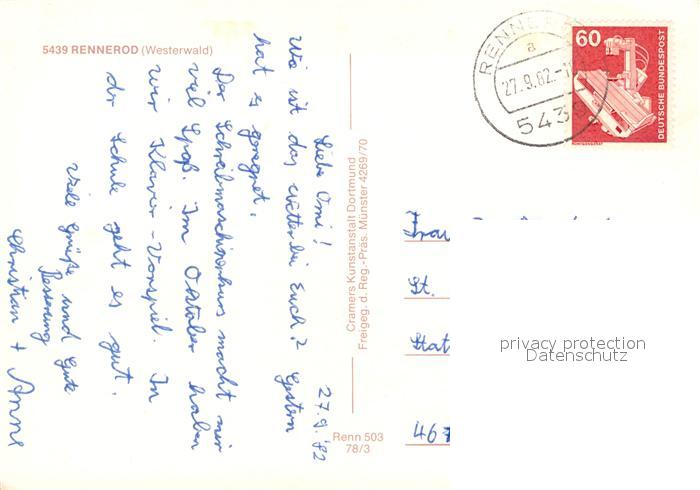 5439 RENNEROD (Westerwald)
27.9.82
Liebe Omi!
Wie ist das Wetter bei Euch? Gestern
hat es geregnet.
Der Schreibmaschinenkurs macht mir
viel Spaß. Im Oktober haben
wir Klavier-Vorspiel. In
der Schule geht es gut.
Viele Grüße und Gute
Besserung
Christian + Anne
Cramers Kunstanstalt Dortmund
Freigeg. d. Reg.-Präs. Münster 4269/70
Renn 503
78/3
RENNE
a
27.9.82.-1
543
60
DEUTSCHE BUNDESPOST
Frau
St.
Stat
467
privacy protection
Datenschutz